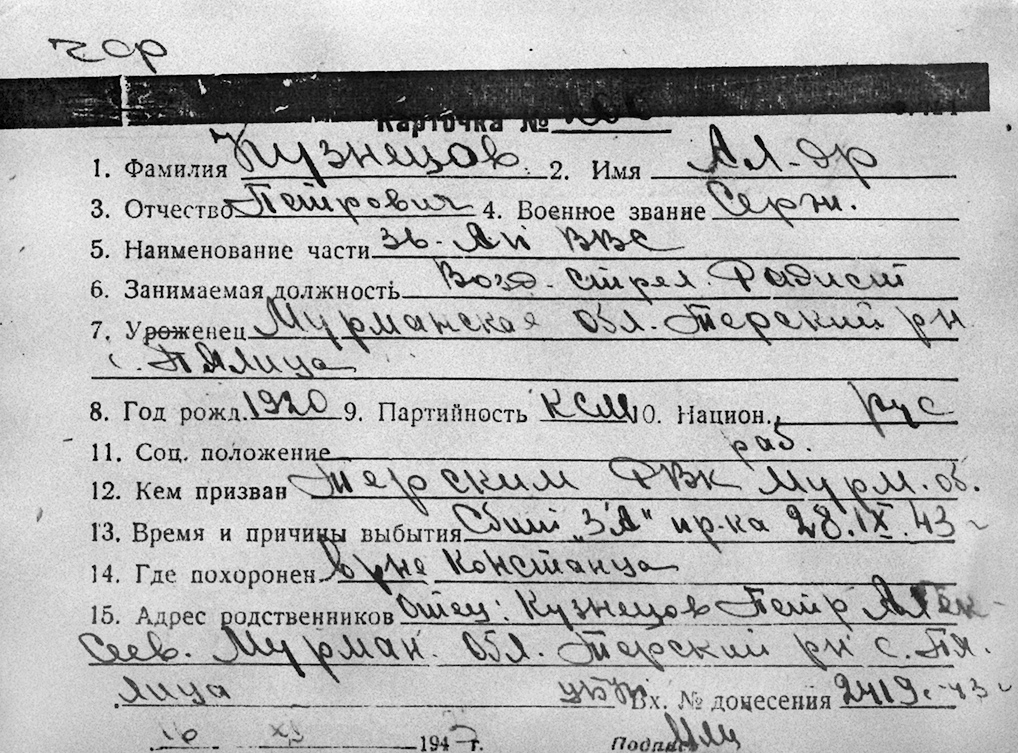 Карточка №
1. Фамилия Кузнецов 2. Имя Ал-др
3. Отчество Петрович 4. Военное звание Серж.
5. Наименование части 36-АП ВВС
6. Занимаемая должность Возд. стрел. Радист
7. Уроженец Мурманская обл. Терский рн
с. Пялица
8. Год рожд. 1920 9. Партийность КСМ 10. Национ. рус
11. Соц. положение раб.
12. Кем призван Терским РВК Мурм. об.
13. Время и причины выбытия Сбит "ЗА" пр-ка 28.IX.43
14. Где похоронен в рне Констанца
15. Адрес родственников отец: Кузнецов Петр Алек-
сеев. Мурман. обл. Терский рн с. Пя.
лица Вх. № донесения 2419с-43
16 1947 г. Подпись